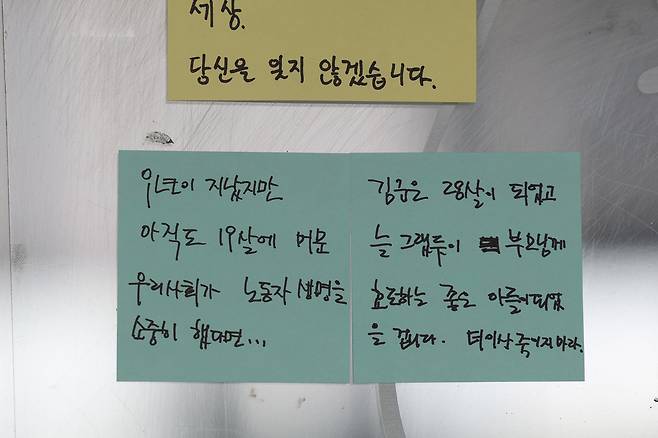 세상.
당신을 잊지 않겠습니다.
9년이 지났지만
아직도 19살에 머문
우리사회가 노동자 생명을
소중히 했다면...
김군은 28살이 되었고
늘 그랬듯이 부모님께
효도하는 좋은 아들이 되었
을 겁니다. 더이상 죽이지마라.